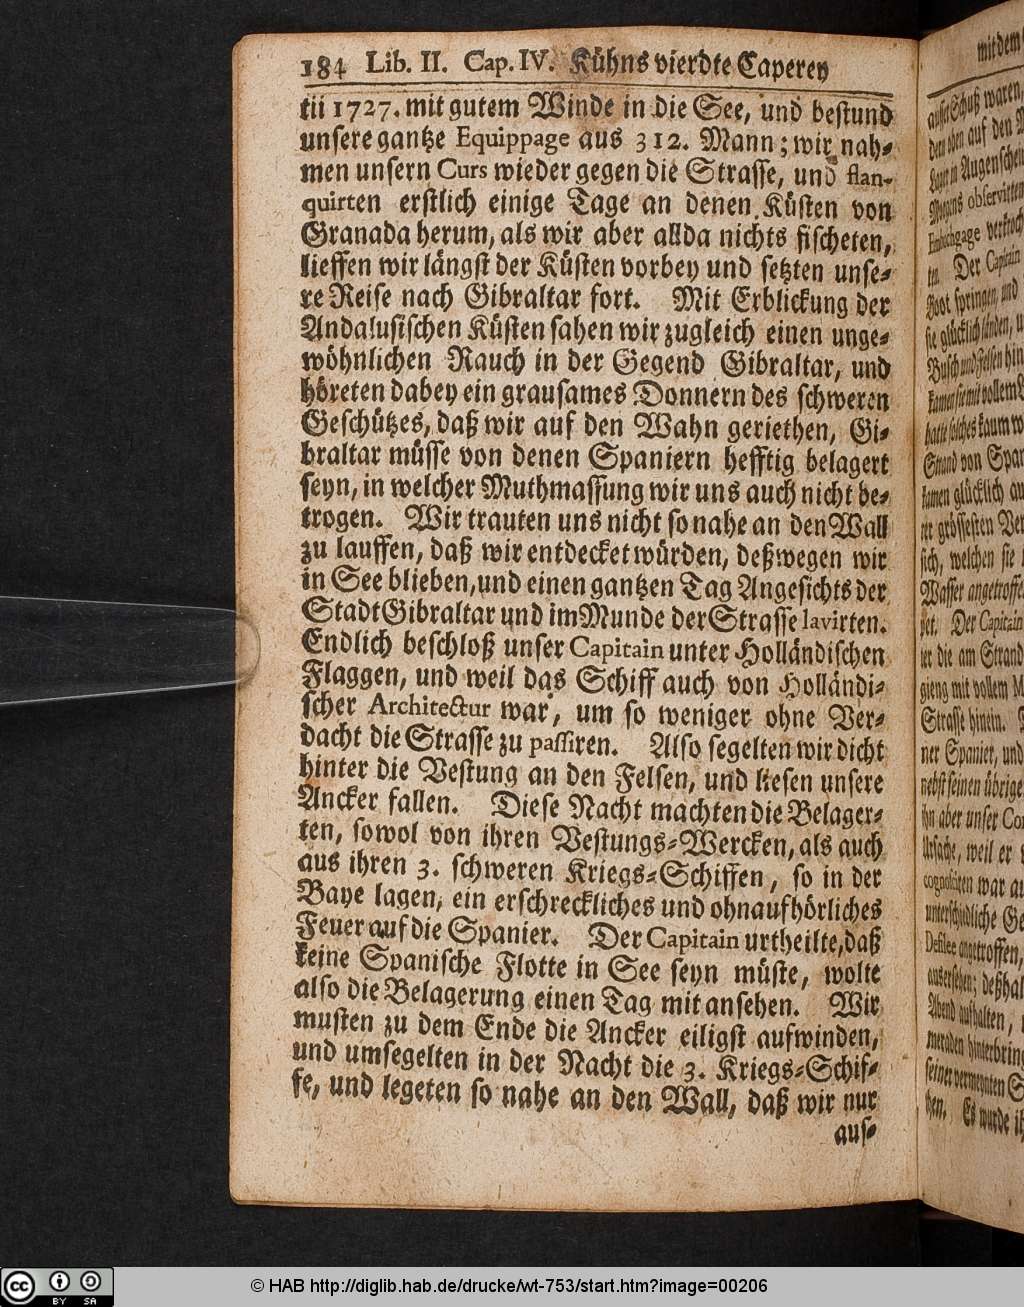 184 Lib. II. Cap. IV. Kühns vierdte Caperey
tii 1727. mit gutem Winde in die See, und bestund
unsere gantze Equippage aus 312. Mann; wir nah-
men unsern Curs wieder gegen die Strasse, und flan-
quirten erstlich einige Tage an denen Küsten von
Granada herum, als wir aber allda nichts fischeten,
lieffen wir längst der Küsten vorbey und setzten unse-
re Reise nach Gibraltar fort. Mit Erblickung der
Andalusischen Küsten sahen wir zugleich einen unge-
wöhnlichen Rauch in der Gegend Gibraltar, und
höreten dabey ein grausames Donnern des schweren
Geschützes, daß wir auf den Wahn geriethen, Gi-
braltar müsse von denen Spaniern hefftig belagert
seyn, in welcher Muthmassung wir uns auch nicht be-
trogen. Wir trauten uns nicht so nahe an den Wall
zu lauffen, daß wir entdecket würden, deßwegen wir
in See blieben, und einen gantzen Tag Angesichts der
Stadt Gibraltar und im Munde der Strasse lavirten.
Endlich beschloß unser Capitain unter Holländischen
Flaggen, und weil das Schiff auch von Holländi-
scher Architectur war, um so weniger ohne Ver-
dacht die Strasse zu passiren. Also segelten wir dicht
hinter die Vestung an den Felsen, und liesen unsere
Ancker fallen. Diese Nacht machten die Belager-
ten, sowol von ihren Vestungs-Wercken, als auch
aus ihren 3. schweren Kriegs-Schiffen, so in der
Baye lagen, ein erschreckliches und ohnaufhörliches
Feuer auf die Spanier. Der Capitain urtheilte, daß
keine Spanische Flotte in See seyn müste, wolte
also die Belagerung einen Tag mit ansehen. Wir
musten zu dem Ende die Ancker eiligst aufwinden,
und umsegelten in der Nacht die 3. Kriegs-Schif-
fe, und legeten so nahe an den Wall, daß wir nur
aus-
mit dem
ausser Schuß waren,
auf den
in Augenschein
observirten
ten. Der Capitain
Boot springen, und
sie glücklich länden, u
Busch und Felsen hin
kamen sie mit vollem
hatte solches kaum w
Strand von Span
kamen glücklich au
rer grössesten Ver
sich, welchen sie
Wasser angetroffe
tet. Der Capitain
ier die am Strand
gieng mit vollem M
Strasse hinein.
ner Spanier, und
nebst seinen übrige
ihn aber unser Co
Ursache, weil er
war au
unterschiedliche Ge
Defilee angetroffen,
ausersehen; deßhal
Abend aufhalten,
meraden hinterbring
seiner vermeynten S
hen. Es wurde ih
© HAB http://diglib.hab.de/drucke/wt-753/start.htm?image=00206
cc BY SA